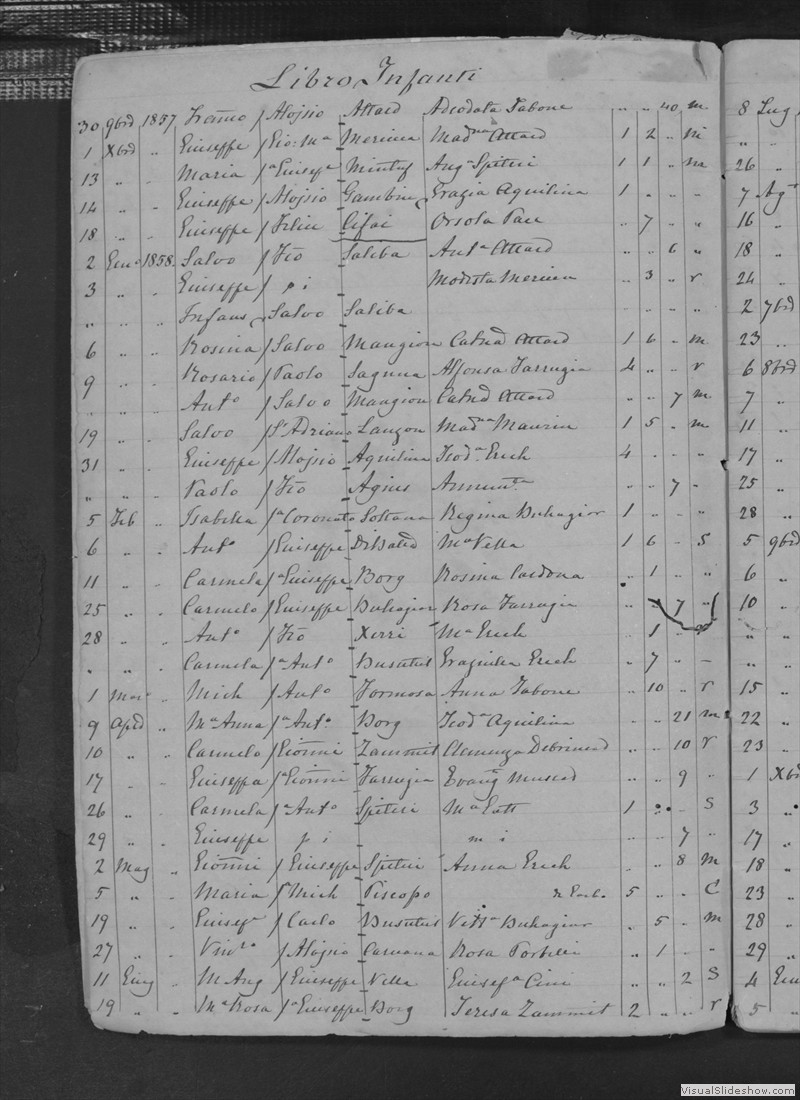 Libro Infanti
30 9bre 1857 Franco / Aloisio Attard Adeodata Tabone .. .. 20 m 8 Lug
1 Xbre .. Giuseppe / Gio Ma Mercieca Madna Attard 1 2 .. m
13 .. .. Maria /a Giusepe Mintuf Anga Spiteri 1 1 .. m 26 ..
14 .. Giuseppe / Aloisio Gambin Grazia Aquilina 1 7 Agto
18 .. Giuseppe / Felice Cefai Orsola Pace .. 7 .. .. 16 ..
2 Geno 1858 Salvo / Fco Saliba Anta Attard 6 .. 18 ..
3 .. .. Giuseppe / p i Modesta Mercieca .. 3 .. r 24
.. .. .. Infans Salvo Saliba 2 7bre
6 .. .. Rosina / Salvo Mangion Catna Attard 1 6 .. m 23 ..
9 .. .. Rosario / Paolo Saguna Alfonsa Farrugia 4 .. .. r 6 8bre
.. .. .. Anto / Salvo Mangion Catna Attard .. .. 7 m 7 ..
19 .. .. Salvo / St Adriano Lauzon Madna Maurin 1 5 .. m 11 ..
31 .. .. Giuseppe / Aloisio Aquilina Teoda Grech 4 .. .. .. 17 ..
.. .. .. Paolo / Fco Agius Annunta .. .. 7 .. 25 ..
5 Feb .. Isabella /a Coronato Soltana Regina Buhagiar 1 .. .. .. 28 ..
6 .. .. Anto / Giuseppe Ma Vella 1 6 .. S 5 9bre
11 .. .. Carmela /a Giuseppe Borg Rosina Cardona .. 1 .. .. 6 ..
25 .. .. Carmelo / Giuseppe Buhagiar Rosa Farrugia .. .. 7 .. 10 ..
28 .. .. Anto / Fco Xerri Ma Grech .. 1 .. ..
.. .. .. Carmela /a Anto Busuttil Graziulla Grech .. 7 .. ..
1 Maro .. Mich / Anto Formosa Anna Tabone .. 10 .. r 15 ..
9 Aple .. Ma Anna /a Anto Borg Teoda Aquilina .. .. 21 m 22 ..
10 .. .. Carmelo / Gioanni Zammit Clemenza Debrincad .. .. 10 r 23 ..
17 .. .. Giuseppa /a Gioanni Farrugia Evang Muscad .. .. 9 .. 1 Xbre
26 .. .. Carmela /a Anto Spiteri Ma Catt 1 .. .. S 3 ..
29 .. .. Giuseppe p i m i 7 .. 17 ..
2 Mag .. Gioanni / Giuseppe Spiteri Anna Grech .. .. 8 m 18 ..
5 .. .. Maria /a Mich Piscopo 5 .. .. C 23 ..
19 .. .. Giusepe / Carlo Busuttil Vitta Buhagiar .. 5 .. m 28 ..
27 .. .. Vinto / Aloisio Caruana Rosa Portelli .. 1 .. .. 29 ..
11 Giug .. M Ang / Giuseppe Vella Giusepa Cini .. .. 2 S 4
19 .. .. Ma Rosa /a Giuseppe Borg Teresa Zammit 2 .. .. r 5 ..
VisualSlideshow.com